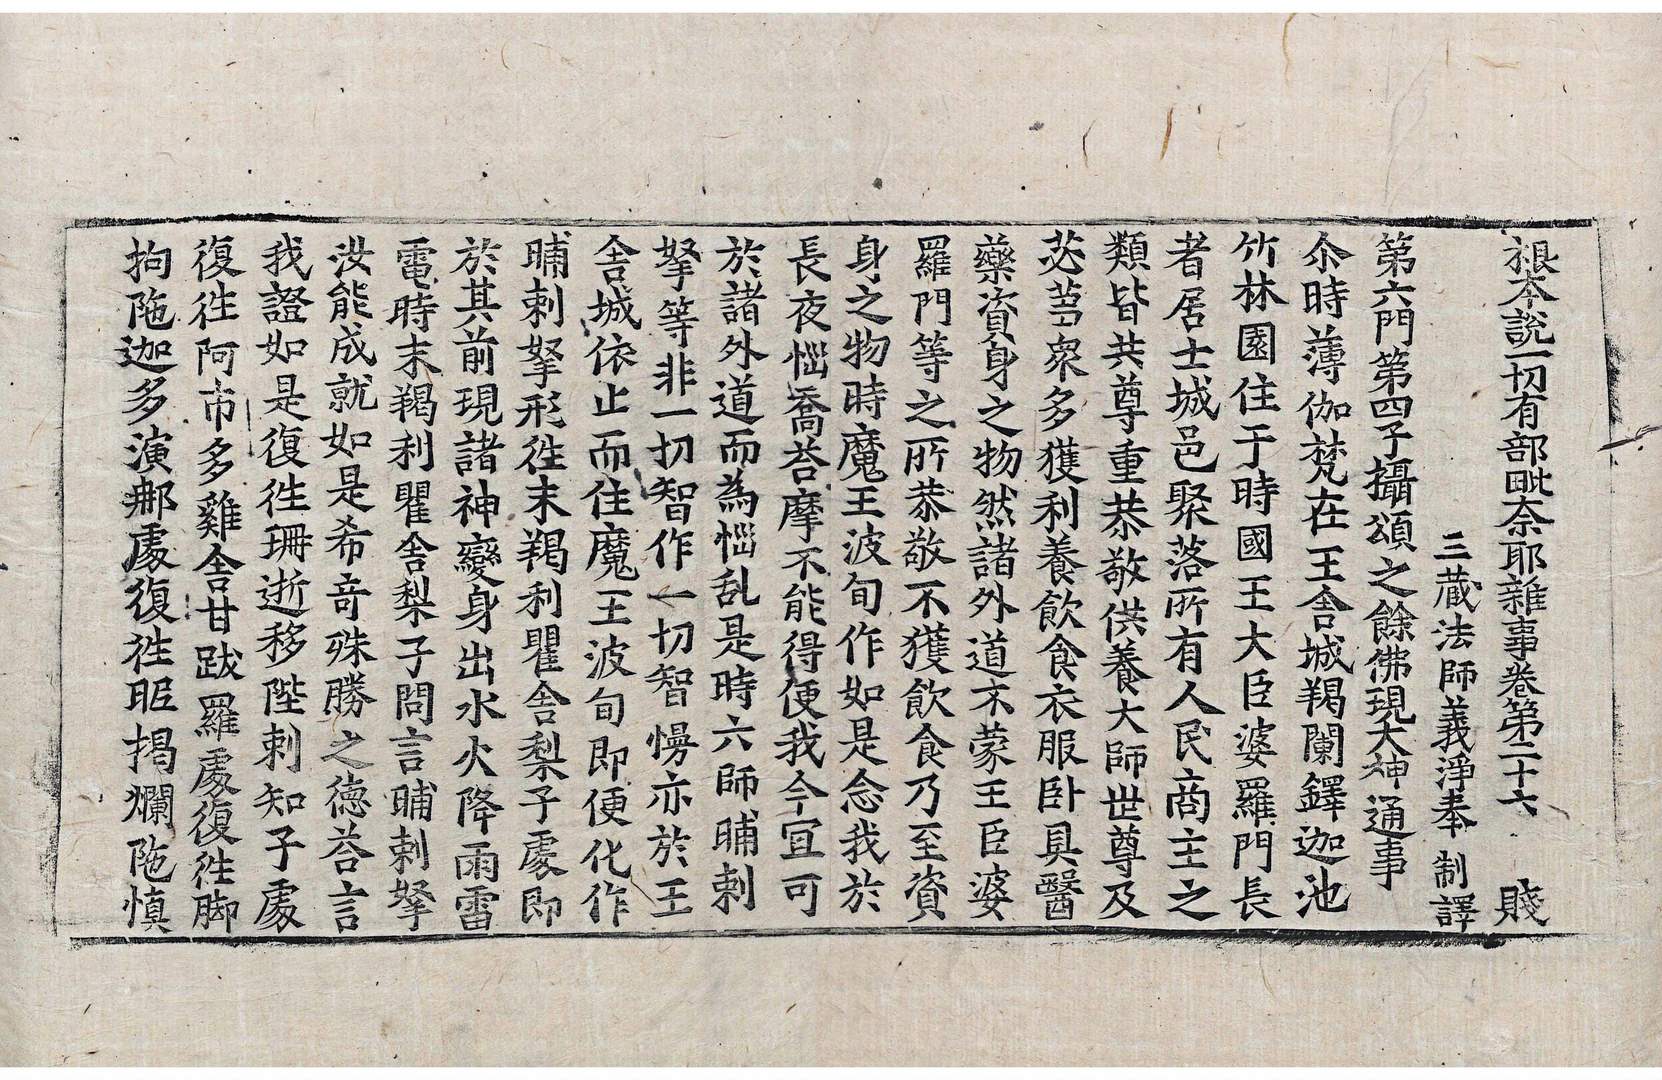 根本說一切有部毗奈耶雜事卷第二十六 賤
三藏法師義淨奉 制譯
第六門第四子攝頌之餘佛現大神通事
尒時薄伽梵在王舍城羯闌鐸迦池
竹林園住于時國王大臣婆羅門長
者居士城邑聚落所有人民商主之
類皆共尊重恭敬供養大師世尊及
苾芻衆多獲利養飲食衣服卧具醫
藥資身之物然諸外道不蒙王臣婆
羅門等之所恭敬不獲飲食乃至資
身之物時魔王波旬作如是念我於
長夜惱喬荅摩不能得便我今冝可
於諸外道而為惱乱是時六師晡剌
拏等非一切智作一切智慢亦於王
舍城依止而住魔王波旬即便化作
晡剌拏形徃末羯利瞿舍梨子處即
於其前現諸神變身出水火降雨雷
電時末羯利瞿舍梨子問言晡剌拏
汝能成就如是希竒殊勝之德荅言
我證如是復徃珊逝移陛剌知子處
復徃阿市多雞舍甘跋羅處復徃脚
拘陁迦多演𨚗處復徃昵揭爛陁慎